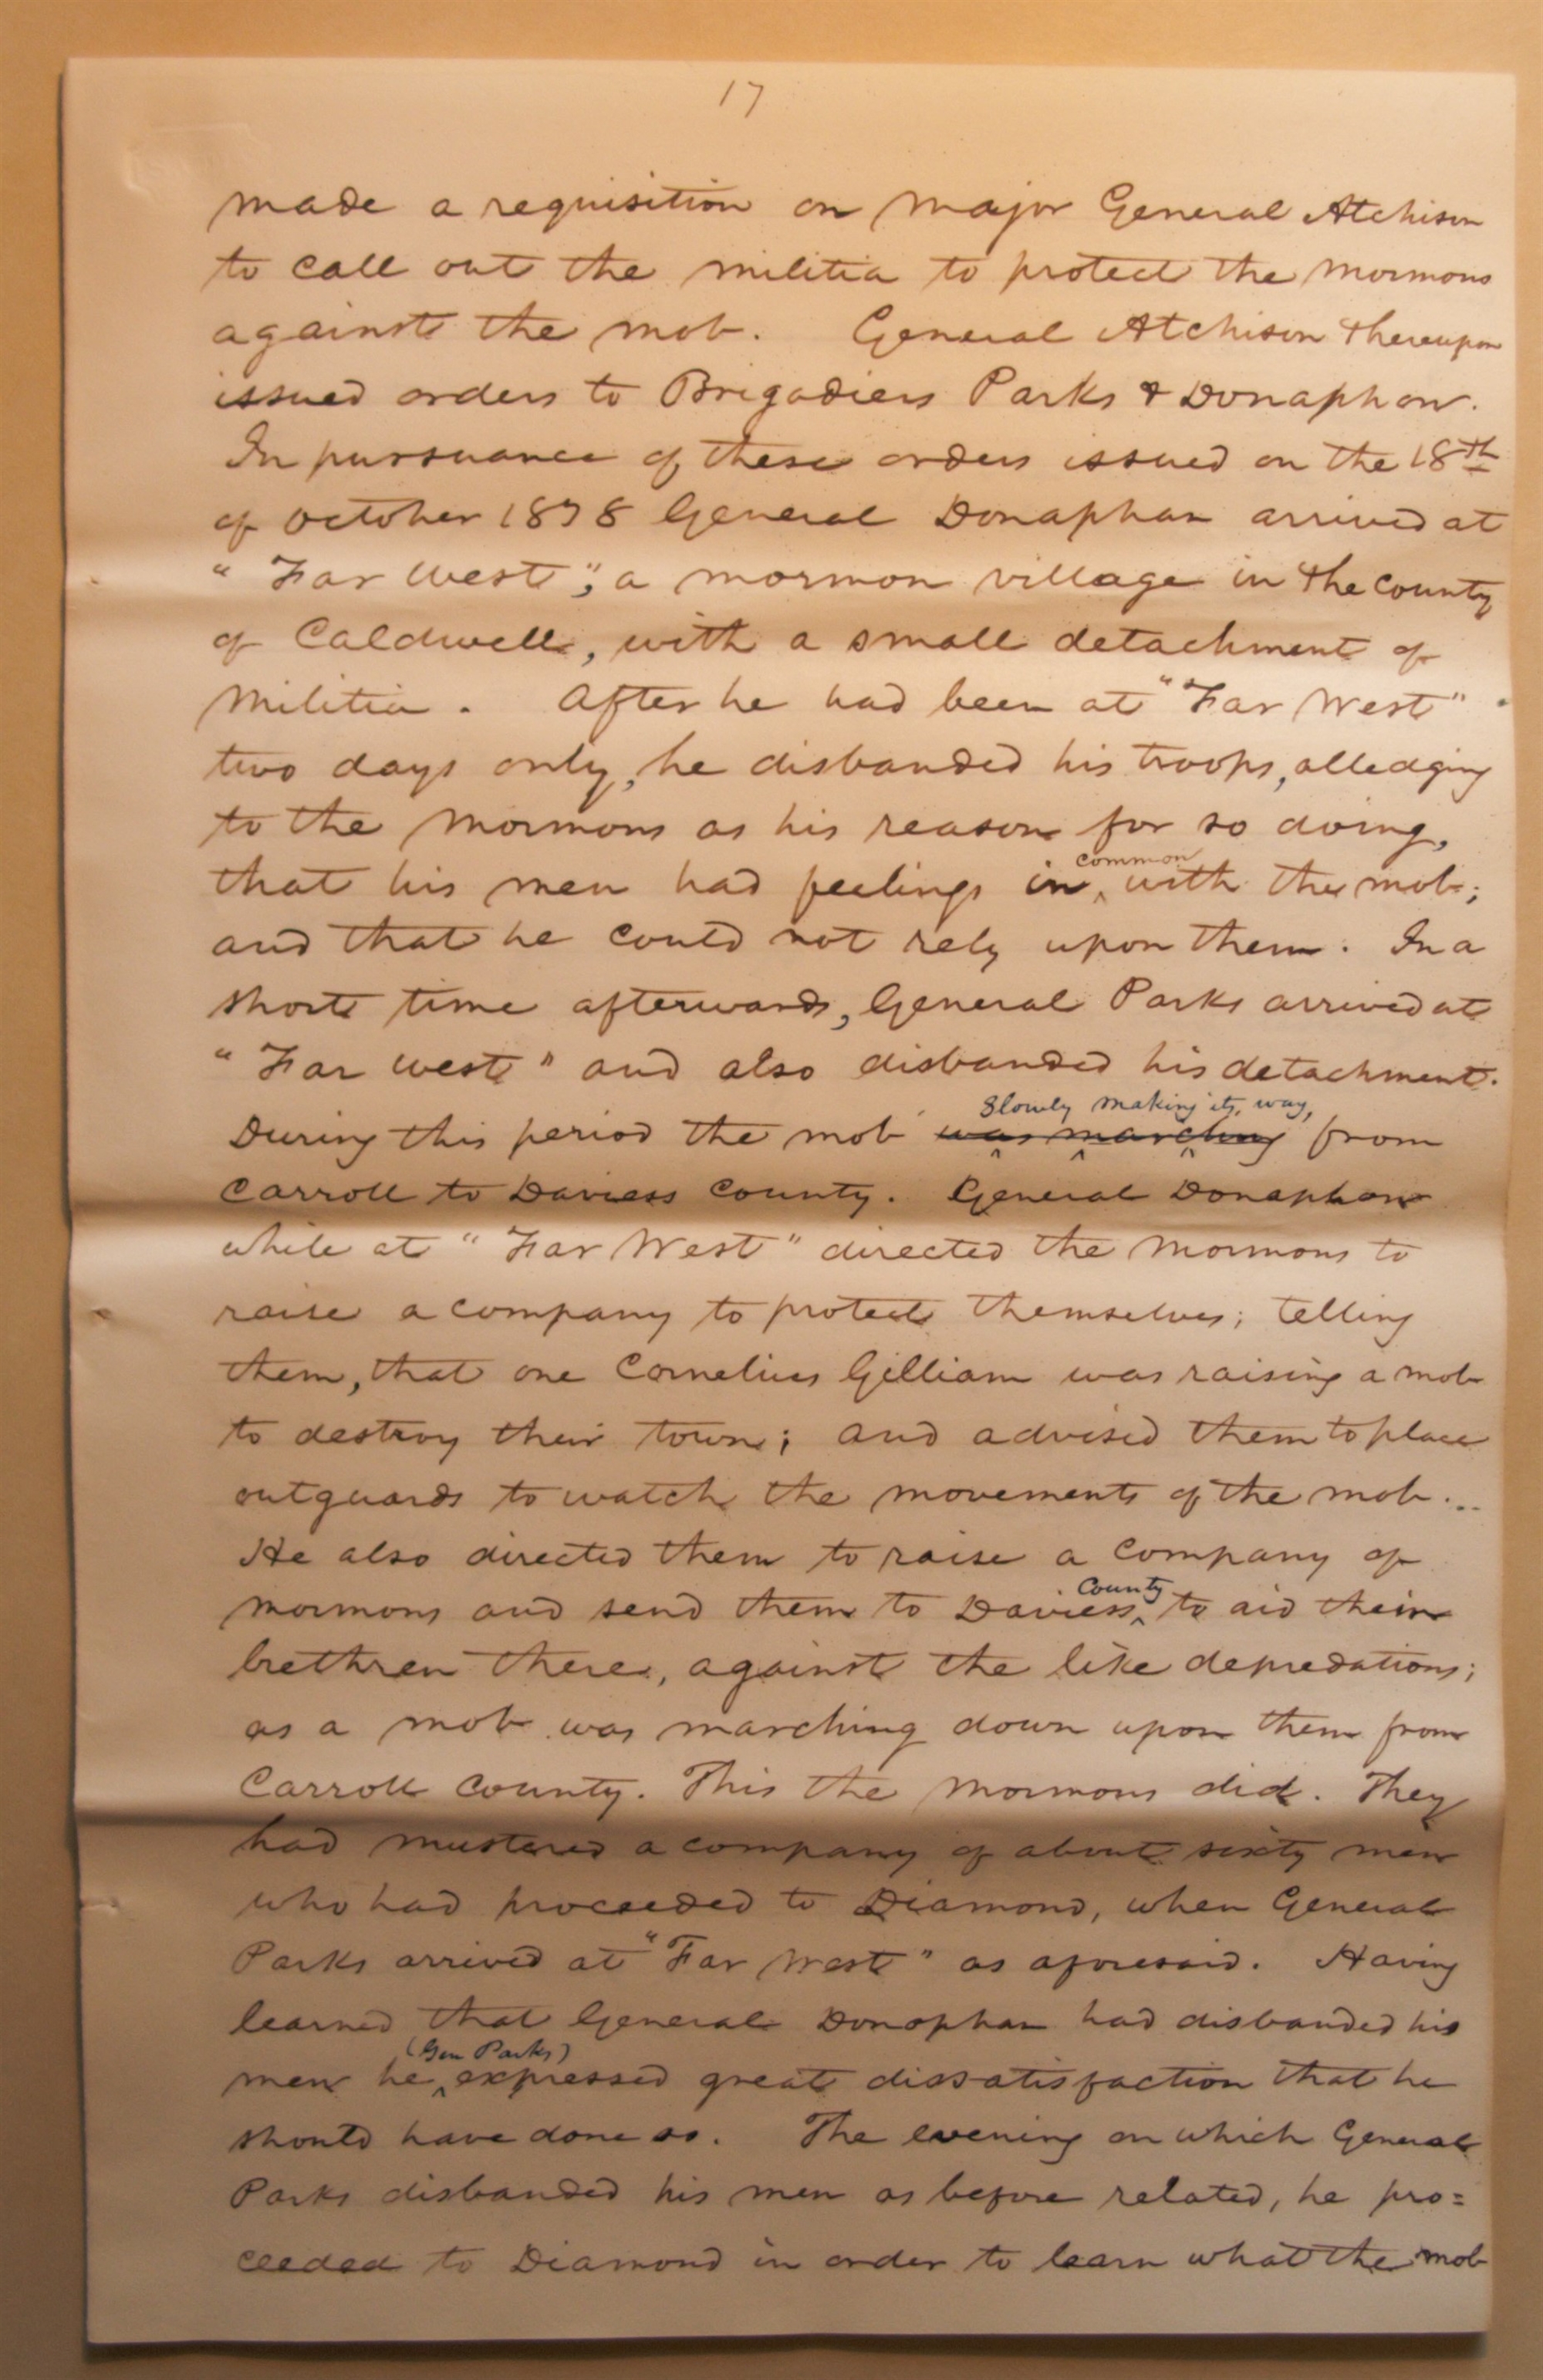 17
made a requisition on Major General Atchison
to call out the militia to protect the Mormons
against the mob. General Atchison thereupon
issued orders to Brigadiers Parks & Donaphan.
In pursuance of these orders issued on the 18th
of October 1838 General Donaphan arrived at
"Far West", a mormon village in the County
of Caldwell, with a small detachment of
Militia. After he had been at "Far West"
two days only, he disbanded his troops, alledging
to the Mormons as his reason for so doing,
common
that his men had feelings in ‸ with the mob;
and that he could not rely upon them. In a
short time afterwards, General Parks arrived at
"Far West" and also disbanded his detachment.
Slowly making its, way,
During this period the mob was marching from
Carroll to Daviess County. General Donaphan
while at "Far West" directed the Mormons to
raise a company to protect themselves; telling
them, that one Cornelius Gilliam was raising a mob
to destroy their town; and advised them to place
outguards to watch the movements of the mob...
He also directed them to raise a company of
County
mormons and send them to Daviess ‸ to aid their
brethren there, against the like depredations;
as a mob was marching down upon them from
Carroll County. This the Mormons did. They
had mustered a company of about sixty men
who had proceeded to Diamond, when General
Parks arrived at "Far West" as aforesaid. Having
learned that General Donophan had disbanded his
(Gen Parks)
men he ‸ expressed great dissatisfaction that he
should have done so. The evening on which General
Parks disbanded his men as before related, he pro=
ceeded to Diamond in order to learn what the mob